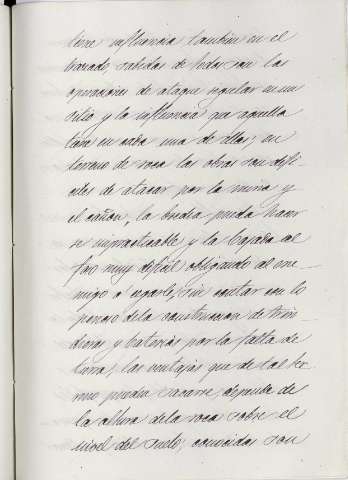 tiene influencia tambien en el
trazado, sabidas de todos son las
operaciones de ataque regular en un
sitio y la influencia que aquella
tiene en cada una de ellas; en
terreno de roca las obras son difi-
ciles de atacar por la mina y
el cañon, la brecha puede hacer
se impracticable y la bajada al
foso muy dificil obligando al ene-
migo á cegarle, sin contar con lo
penoso de la construccion de trin
cheras y baterias por la falta de
tierra; las ventajas que de tal ter
reno pueden sacarse, depende de
la altura de la roca sobre el
nivel del suelo; conocidas son